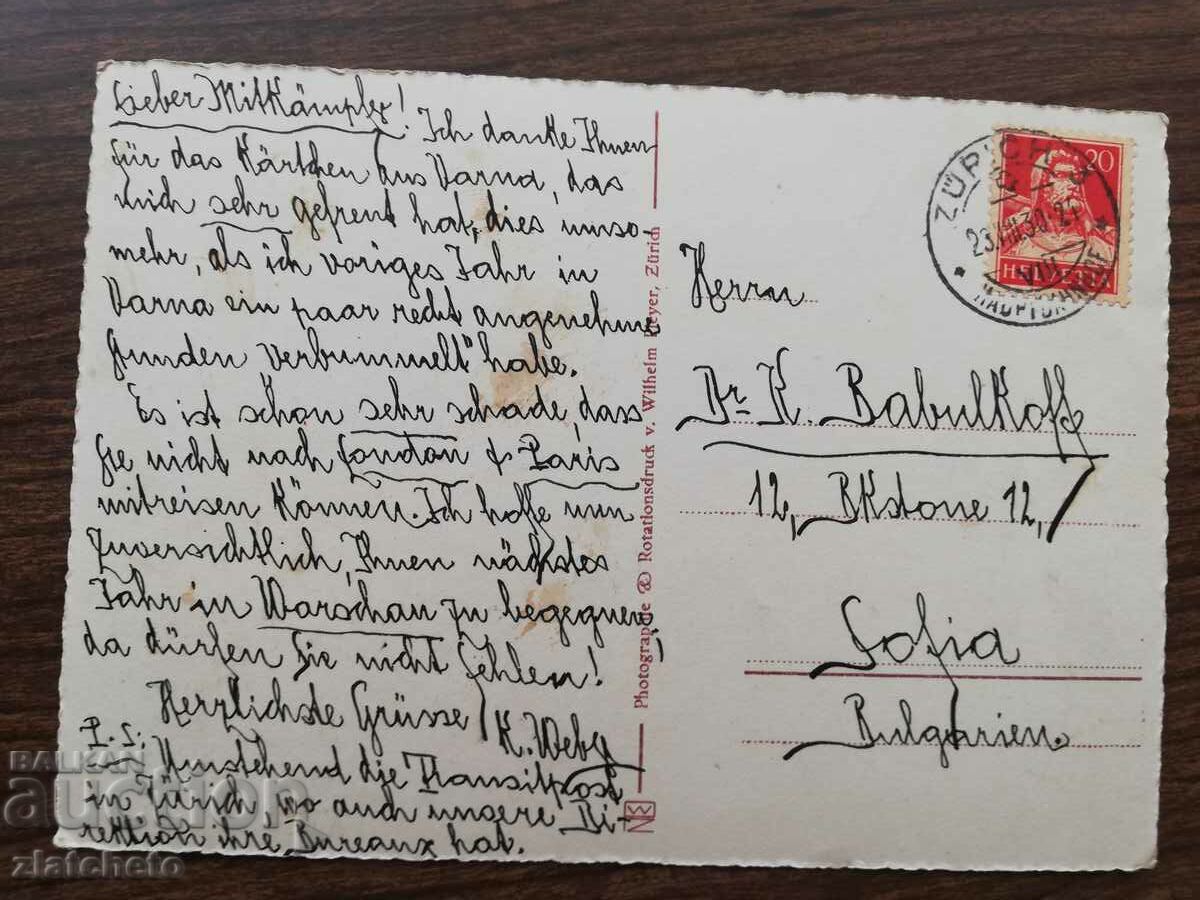 Lieber Mitkämpfer! Ich danke Ihnen
für das Kärtchen aus Varna, das
mich sehr gefreut hat, dies umso-
mehr, als ich voriges Jahr in
Varna ein paar recht angenehme
Stunden „verbummelt" habe.
Es ist schon sehr schade, dass
Sie nicht nach London & Paris
mitreisen können. Ich hoffe nun
zuversichtlich, Ihnen nächstes
Jahr in Warschau zu begegnen,
da dürfen Sie nicht fehlen!
Herzlichste Grüsse
K. Weber
P.S. Umstehend die Transitpost
in Zürich, wo auch unsere Di-
rektion ihre Bureaux hat.
Photographie & Rotationsdruck v. Wilhelm Pleyer, Zürich
ZÜRICH
23.VIII.30.21
VIII
HAUPTBAHNHOF
20
HELVETIA
Herrn
Dr K. Babulkoff
12, Ekstone 12,
Sofia
Bulgarien
BALKAN
auction
zlatcheto